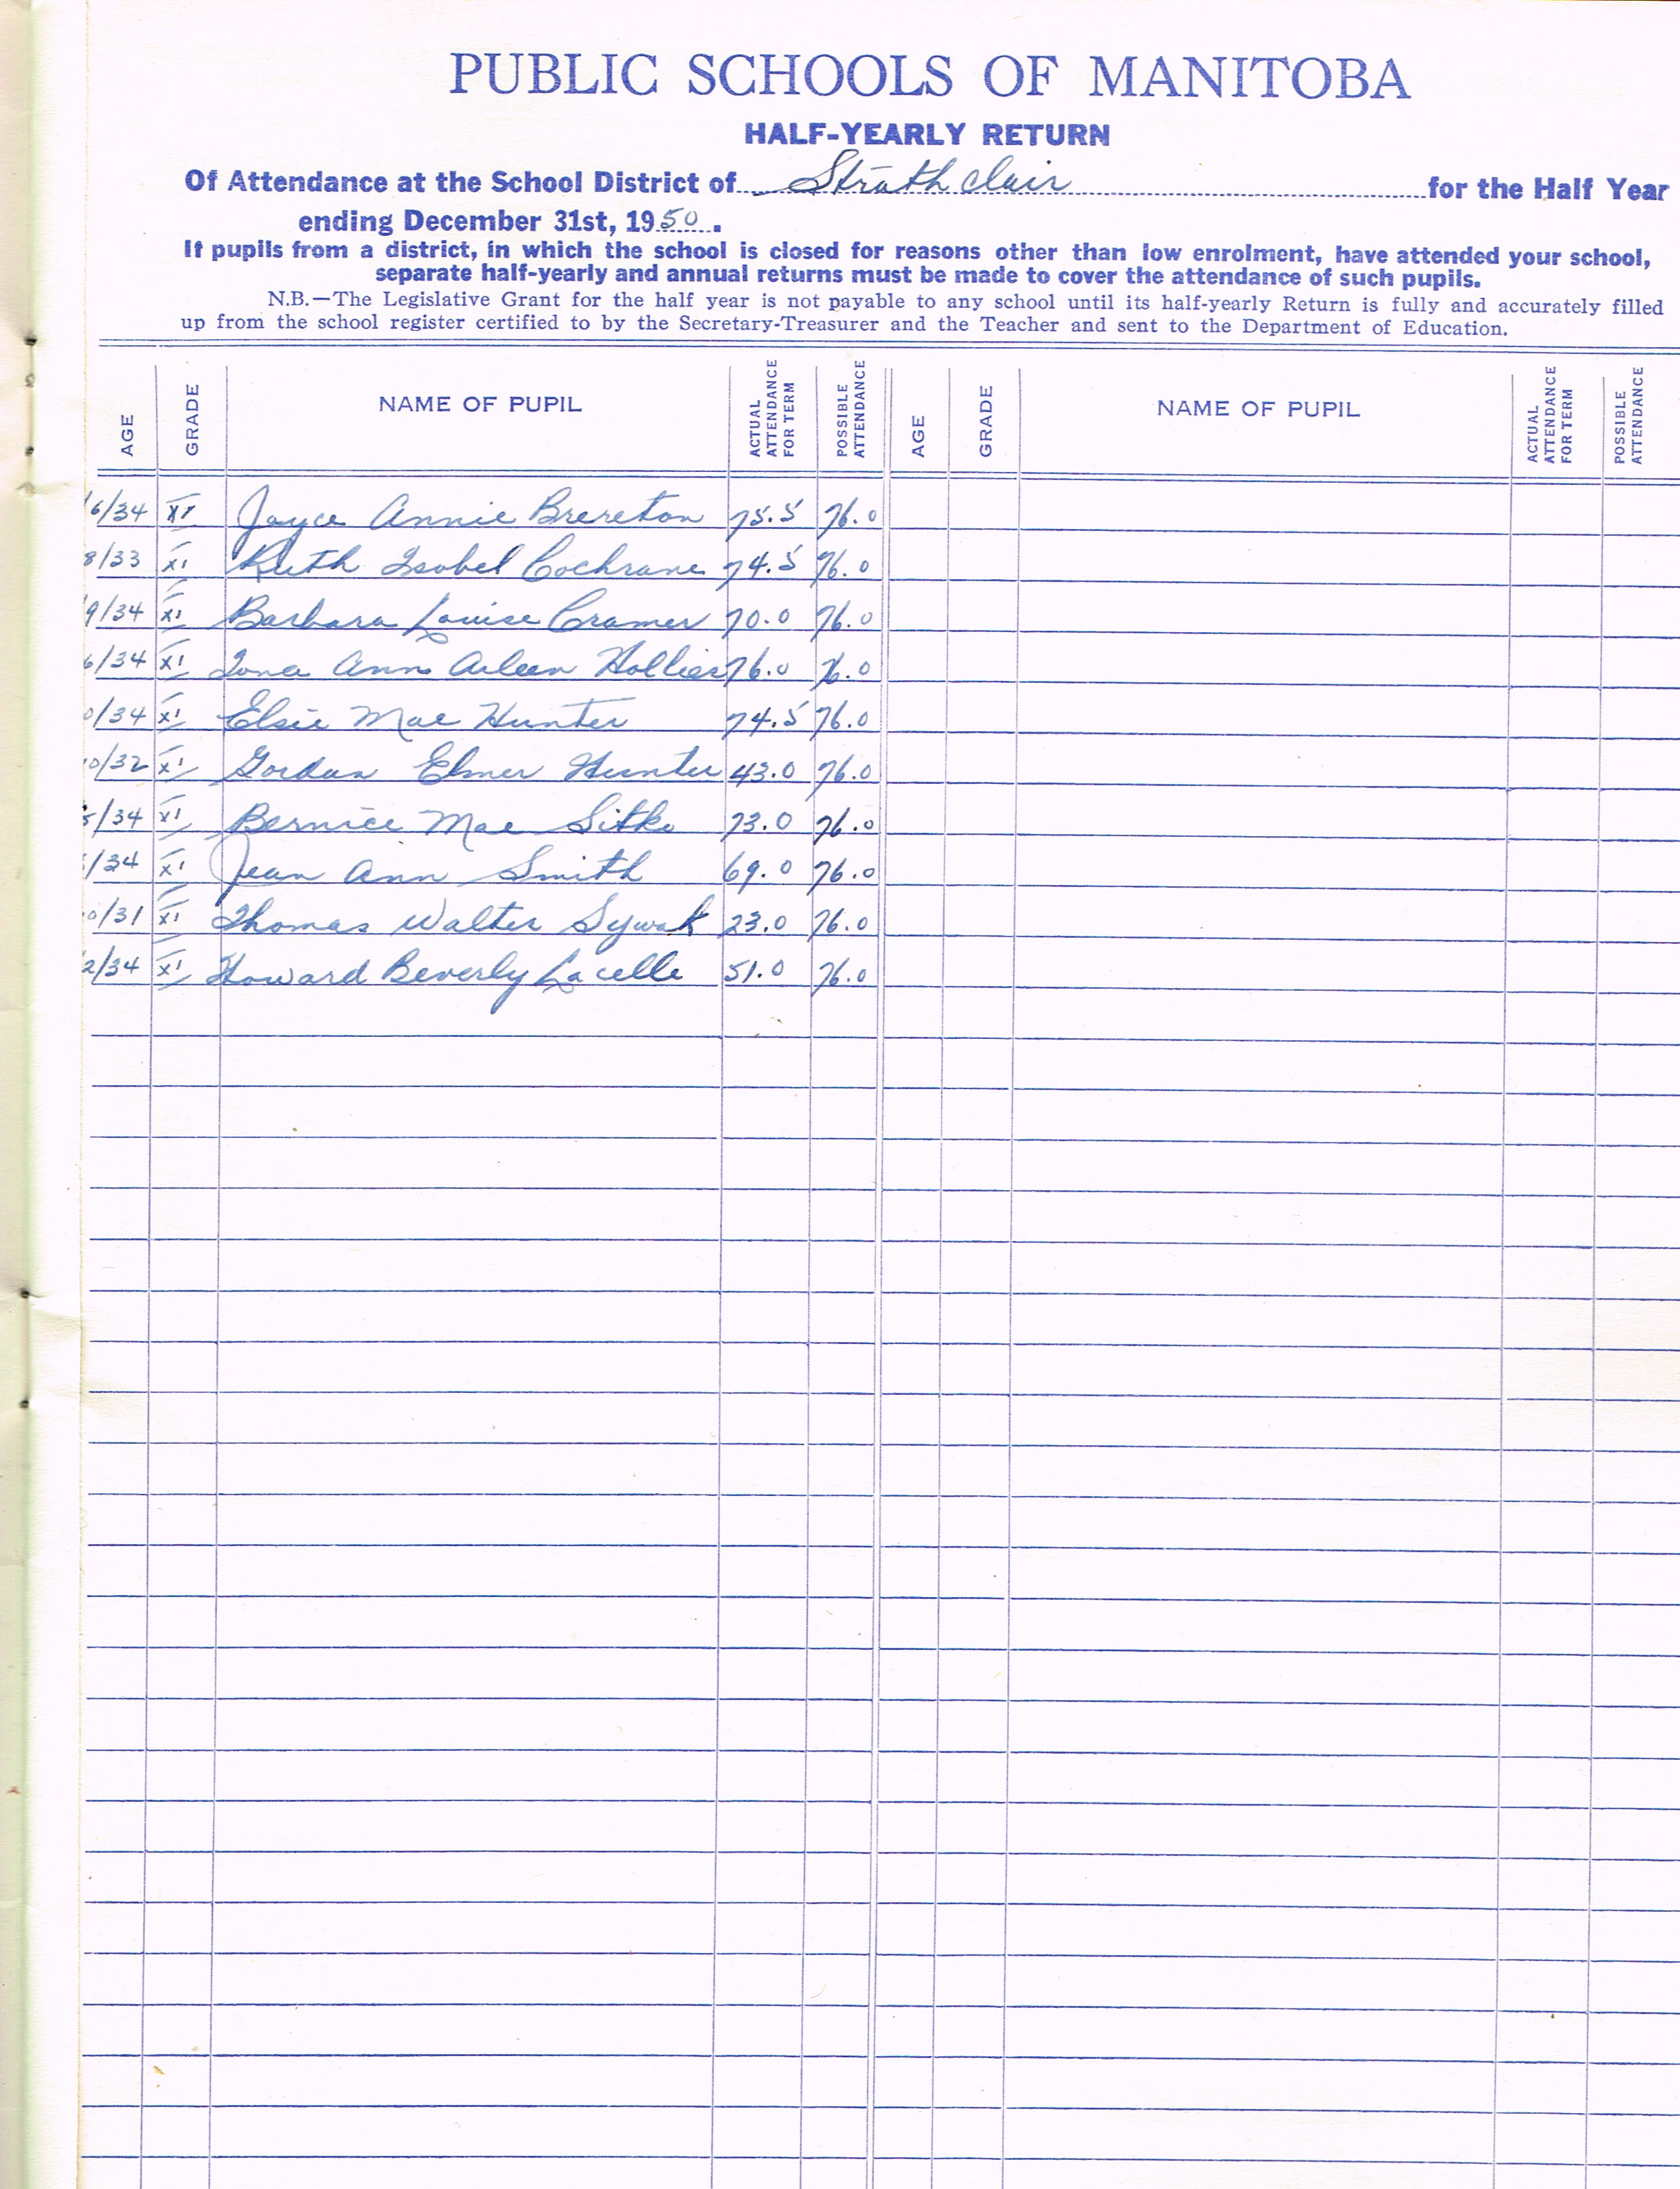 PUBLIC SCHOOLS OF MANITOBA
HALF-YEARLY RETURN
Of Attendance at the School District of Strathclair for the Half Year
ending December 31st, 1950.
If pupils from a district, in which the school is closed for reasons other than low enrolment, have attended your school,
separate half-yearly and annual returns must be made to cover the attendance of such pupils.
N.B.—The Legislative Grant for the half year is not payable to any school until its half-yearly Return is fully and accurately filled
up from the school register certified to by the Secretary-Treasurer and the Teacher and sent to the Department of Education.
AGE GRADE NAME OF PUPIL ACTUAL ATTENDANCE FOR TERM POSSIBLE ATTENDANCE AGE GRADE NAME OF PUPIL ACTUAL ATTENDANCE FOR TERM POSSIBLE ATTENDANCE
6/34 XI Joyce Annie Brereton 75.5 76.0
8/33 XI Ruth Isobel Cochrane 74.5 76.0
9/34 XI Barbara Louise Cramer 70.0 76.0
6/34 XI Iona Ann Arleen Hollier 76.0 76.0
0/34 XI Elsie Mae Hunter 74.5 76.0
10/32 XI Gordon Elmer Hunter 43.0 76.0
5/34 XI Bernice Mae Sitko 73.0 76.0
/34 XI Jean Ann Smith 69.0 76.0
0/31 XI Thomas Walter Sywak 23.0 76.0
2/34 XI Howard Beverly Lacelle 51.0 76.0